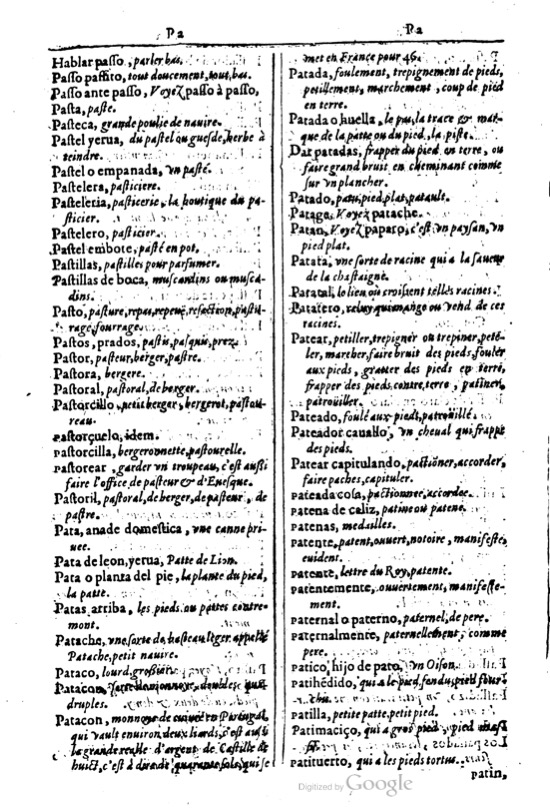 Pa
Hablar passo, parler bas.
Passo passito, tout doucement, tout bas.
Passo ante passo, Voyez passo à passo,
Pasta, paste.
Pasteca, grande poulie de nauire.
Pastel yerua, du pastel ou guesde, herbe à
teindre.
Pastel o empanada, vn pasté.
Pastelera, pasticiere.
Pasteleria, pasticerie, la boutique du pa-
sticier.
Pastelero, pasticier.
Pastel embote, pasté en pot.
Pastillas, pastilles pour parfumer.
Pastillas de boca, muscardins ou musca-
dins.
Pasto, pasture, repas, repeue, refection, pastu-
rage, fourrage.
Pastos, prados, pastis, pasquis, prez.
Pastor, pasteur, berger, pastre.
Pastora, bergere.
Pastoral, pastoral, de berger.
Pastorcillo, petit berger, bergerot, pastou-
reau.
Pastorçuelo, idem.
Pastorcilla, bergeronnette, pastourelle.
Pastorear, garder vn troupeau, c'est aussi
faire l'office de pasteur & d'Euesque.
Pastoril, pastoral, de berger, de pasteur, de
pastre.
Pata, anade domestica, vne canne pri-
uee.
Pata de leon, yerua, Patte de Lion.
Pata o planta del pie, la plante du pied,
la patte.
Patas arriba, les pieds ou pattes contre-
mont.
Patache, vne sorte de basteau leger appellé
Patache, petit nauire.
Pataco, lourd, grossier.
Patacon, double, qua-
druples.
Patacon, monnoye de cuiure en Portugal,
qui vault enuiron deux liards, c'est aussi
la grande realle d'argent de Castille de
huict, c'est à dire de quarante sols, qui se
Pa
met en France pour 46.
Patada, foulement, trepignement de pieds,
petillement, marchement, coup de pied
en terre.
Patada o huella, le pas, la trace & mar-
que de la patte ou du pied, la piste.
Dar patadas, frapper du pied en terre, ou
faire grand bruit en cheminant comme
sur vn plancher.
Patado, patu, pied plat, patault.
Patage, Voyez patache.
Patan, Voyez paparo, c'est vn paysan, vn
pied plat.
Patata, vne sorte de racine qui a la saueur
de la chastaigne.
Patatal, lo lieu où croissent telles racines.
Patatero, celuy qui mange ou vend de ces
racines.
Patear, petiller, trepigner ou trepiner, peté-
ler, marcher, faire bruit des pieds, fouler
aux pieds, gratter des pieds en terre,
frapper des pieds contre terre, patiner,
patroüiller.
Pateado, foulé aux pieds, patroüillé.
Pateador cauallo, vn cheual qui frappe
des pieds.
Patear capitulando, pactioner, accorder,
faire paches, capituler.
Pateada cosa, pactionnee, accordee.
Patena de caliz, patine ou patene.
Patenas, medailles.
Patente, patent, ouuert, notoire, manifeste,
euident.
Patente, lettre du Roy, patente.
Patentemente, ouuertement, manifeste-
ment.
Paternal o paterno, paternel, de pere.
Paternalmente, paternellement, comme
pere.
Patico, hijo de pato, vn Oison.
Patihédido, qui a le pied fendu, pied four-
chu.
Patilla, petite patte, petit pied.
Patimaciço, qui a gros pied, pied
Patituerto, qui a les pieds tortus.
patin,
Digitized by Google